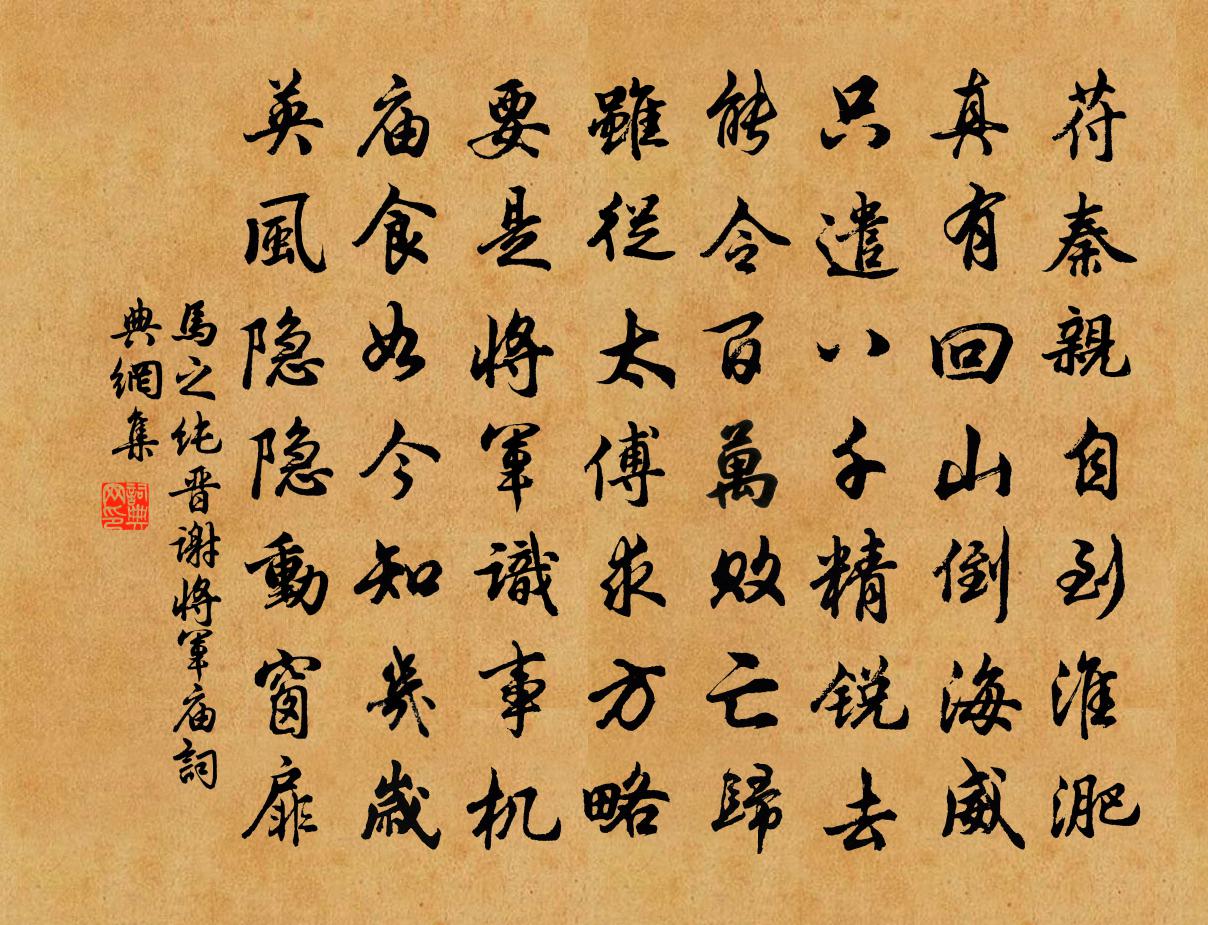 苻秦親自到淮淝
真有回山倒海威
只遣八千精锐去
能令百萬敗亡歸
雖從太傅求方略
要是將軍識事机
庙食如今知幾歲
英風隐隐動窗扉
馬之纯晋谢將軍庙詞
典網集
詞典